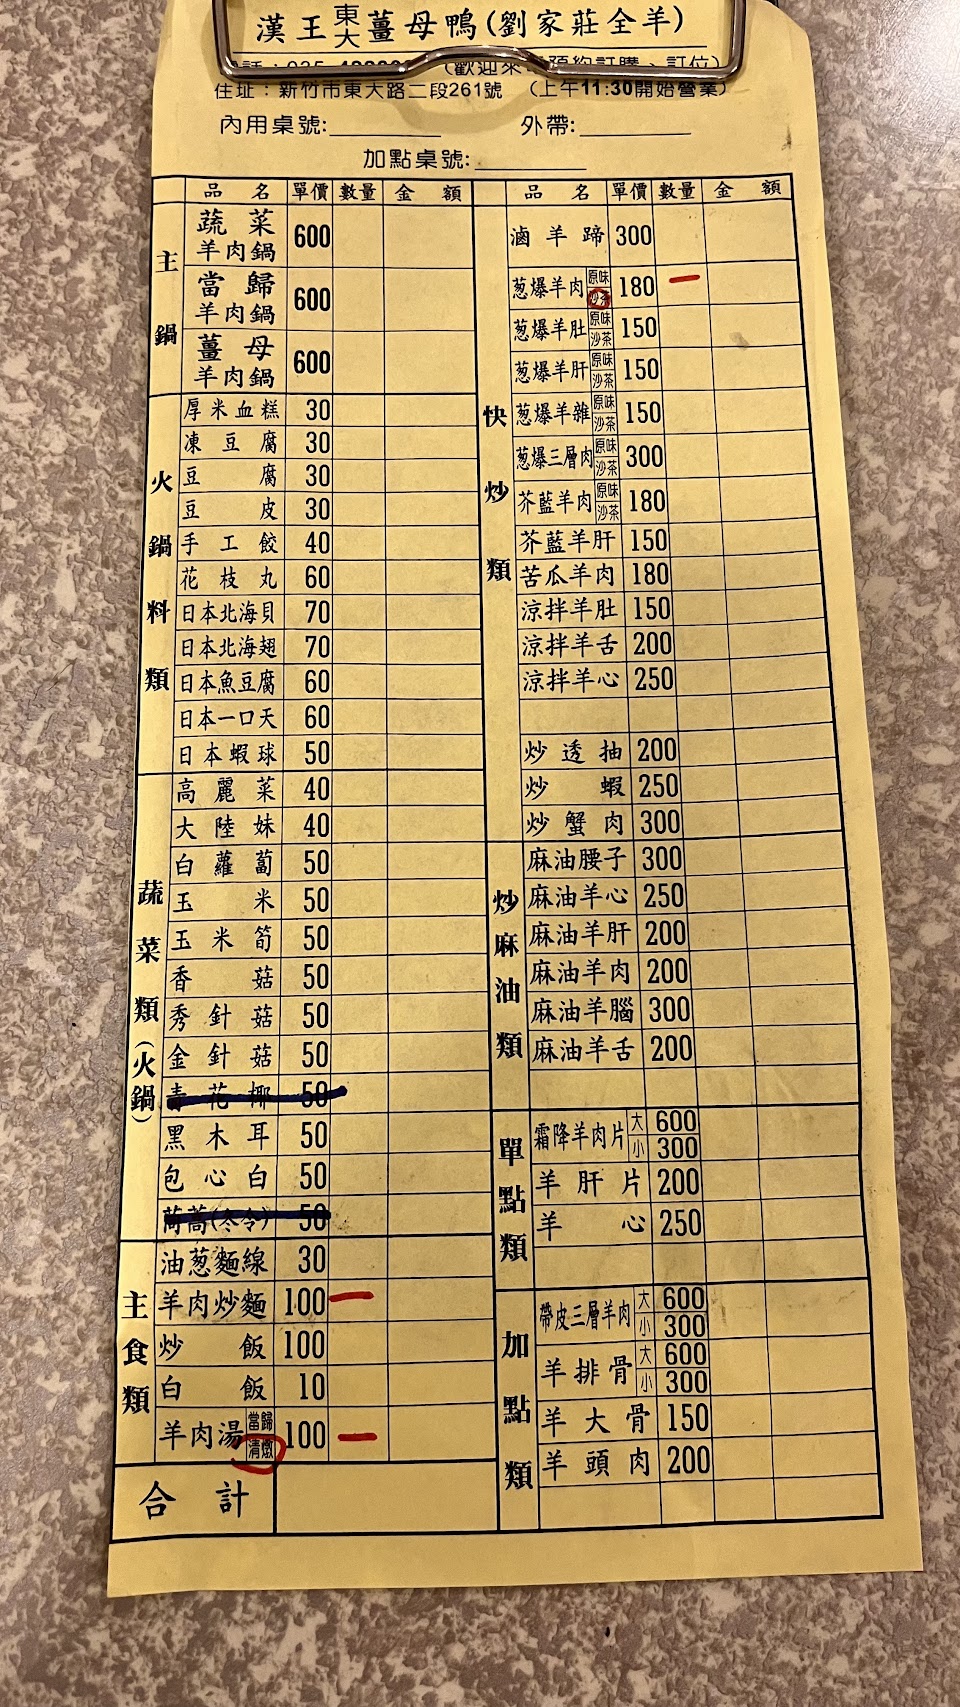 漢王東大薑母鴨(劉家莊全羊)
住址：新竹市東大路二段261號 (上午11:30開始營業)
內用桌號:________ 外帶:________
加點桌號:________
品名 單價 數量 金額
主鍋
蔬菜羊肉鍋 600
當歸羊肉鍋 600
薑母羊肉鍋 600
火鍋料類
厚米血糕 30
凍豆腐 30
豆腐 30
豆皮 30
手工餃 40
花枝丸 60
日本北海貝 70
日本北海翅 70
日本魚豆腐 60
日本一口天 60
日本蝦球 50
蔬菜類(火鍋)
高麗菜 40
大陸妹 40
白蘿蔔 50
玉米 50
玉米筍 50
香菇 50
秀針菇 50
金針菇 50
青花椰 50
黑木耳 50
包心白 50
茼蒿(冬令) 50
主食類
油葱麵線 30
羊肉炒麵 100 一
炒飯 100
白飯 10
羊肉湯 當歸 清燉 100 一
合計
品名 單價 數量 金額
快炒類
滷羊蹄 300
葱爆羊肉 原味 沙茶 180 一
葱爆羊肚 原味 沙茶 150
葱爆羊肝 原味 沙茶 150
葱爆羊雜 原味 沙茶 150
葱爆三層肉 原味 沙茶 300
芥藍羊肉 原味 沙茶 180
芥藍羊肝 150
苦瓜羊肉 180
涼拌羊肚 150
涼拌羊舌 200
涼拌羊心 250
炒透抽 200
炒蝦 250
炒蟹肉 300
炒麻油類
麻油腰子 300
麻油羊心 250
麻油羊肝 200
麻油羊肉 200
麻油羊腦 300
麻油羊舌 200
單點類
霜降羊肉片 大 600 小 300
羊肝片 200
羊心 250
加點類
帶皮三層羊肉 大 600 小 300
羊排骨 大 600 小 300
羊大骨 150
羊頭肉 200